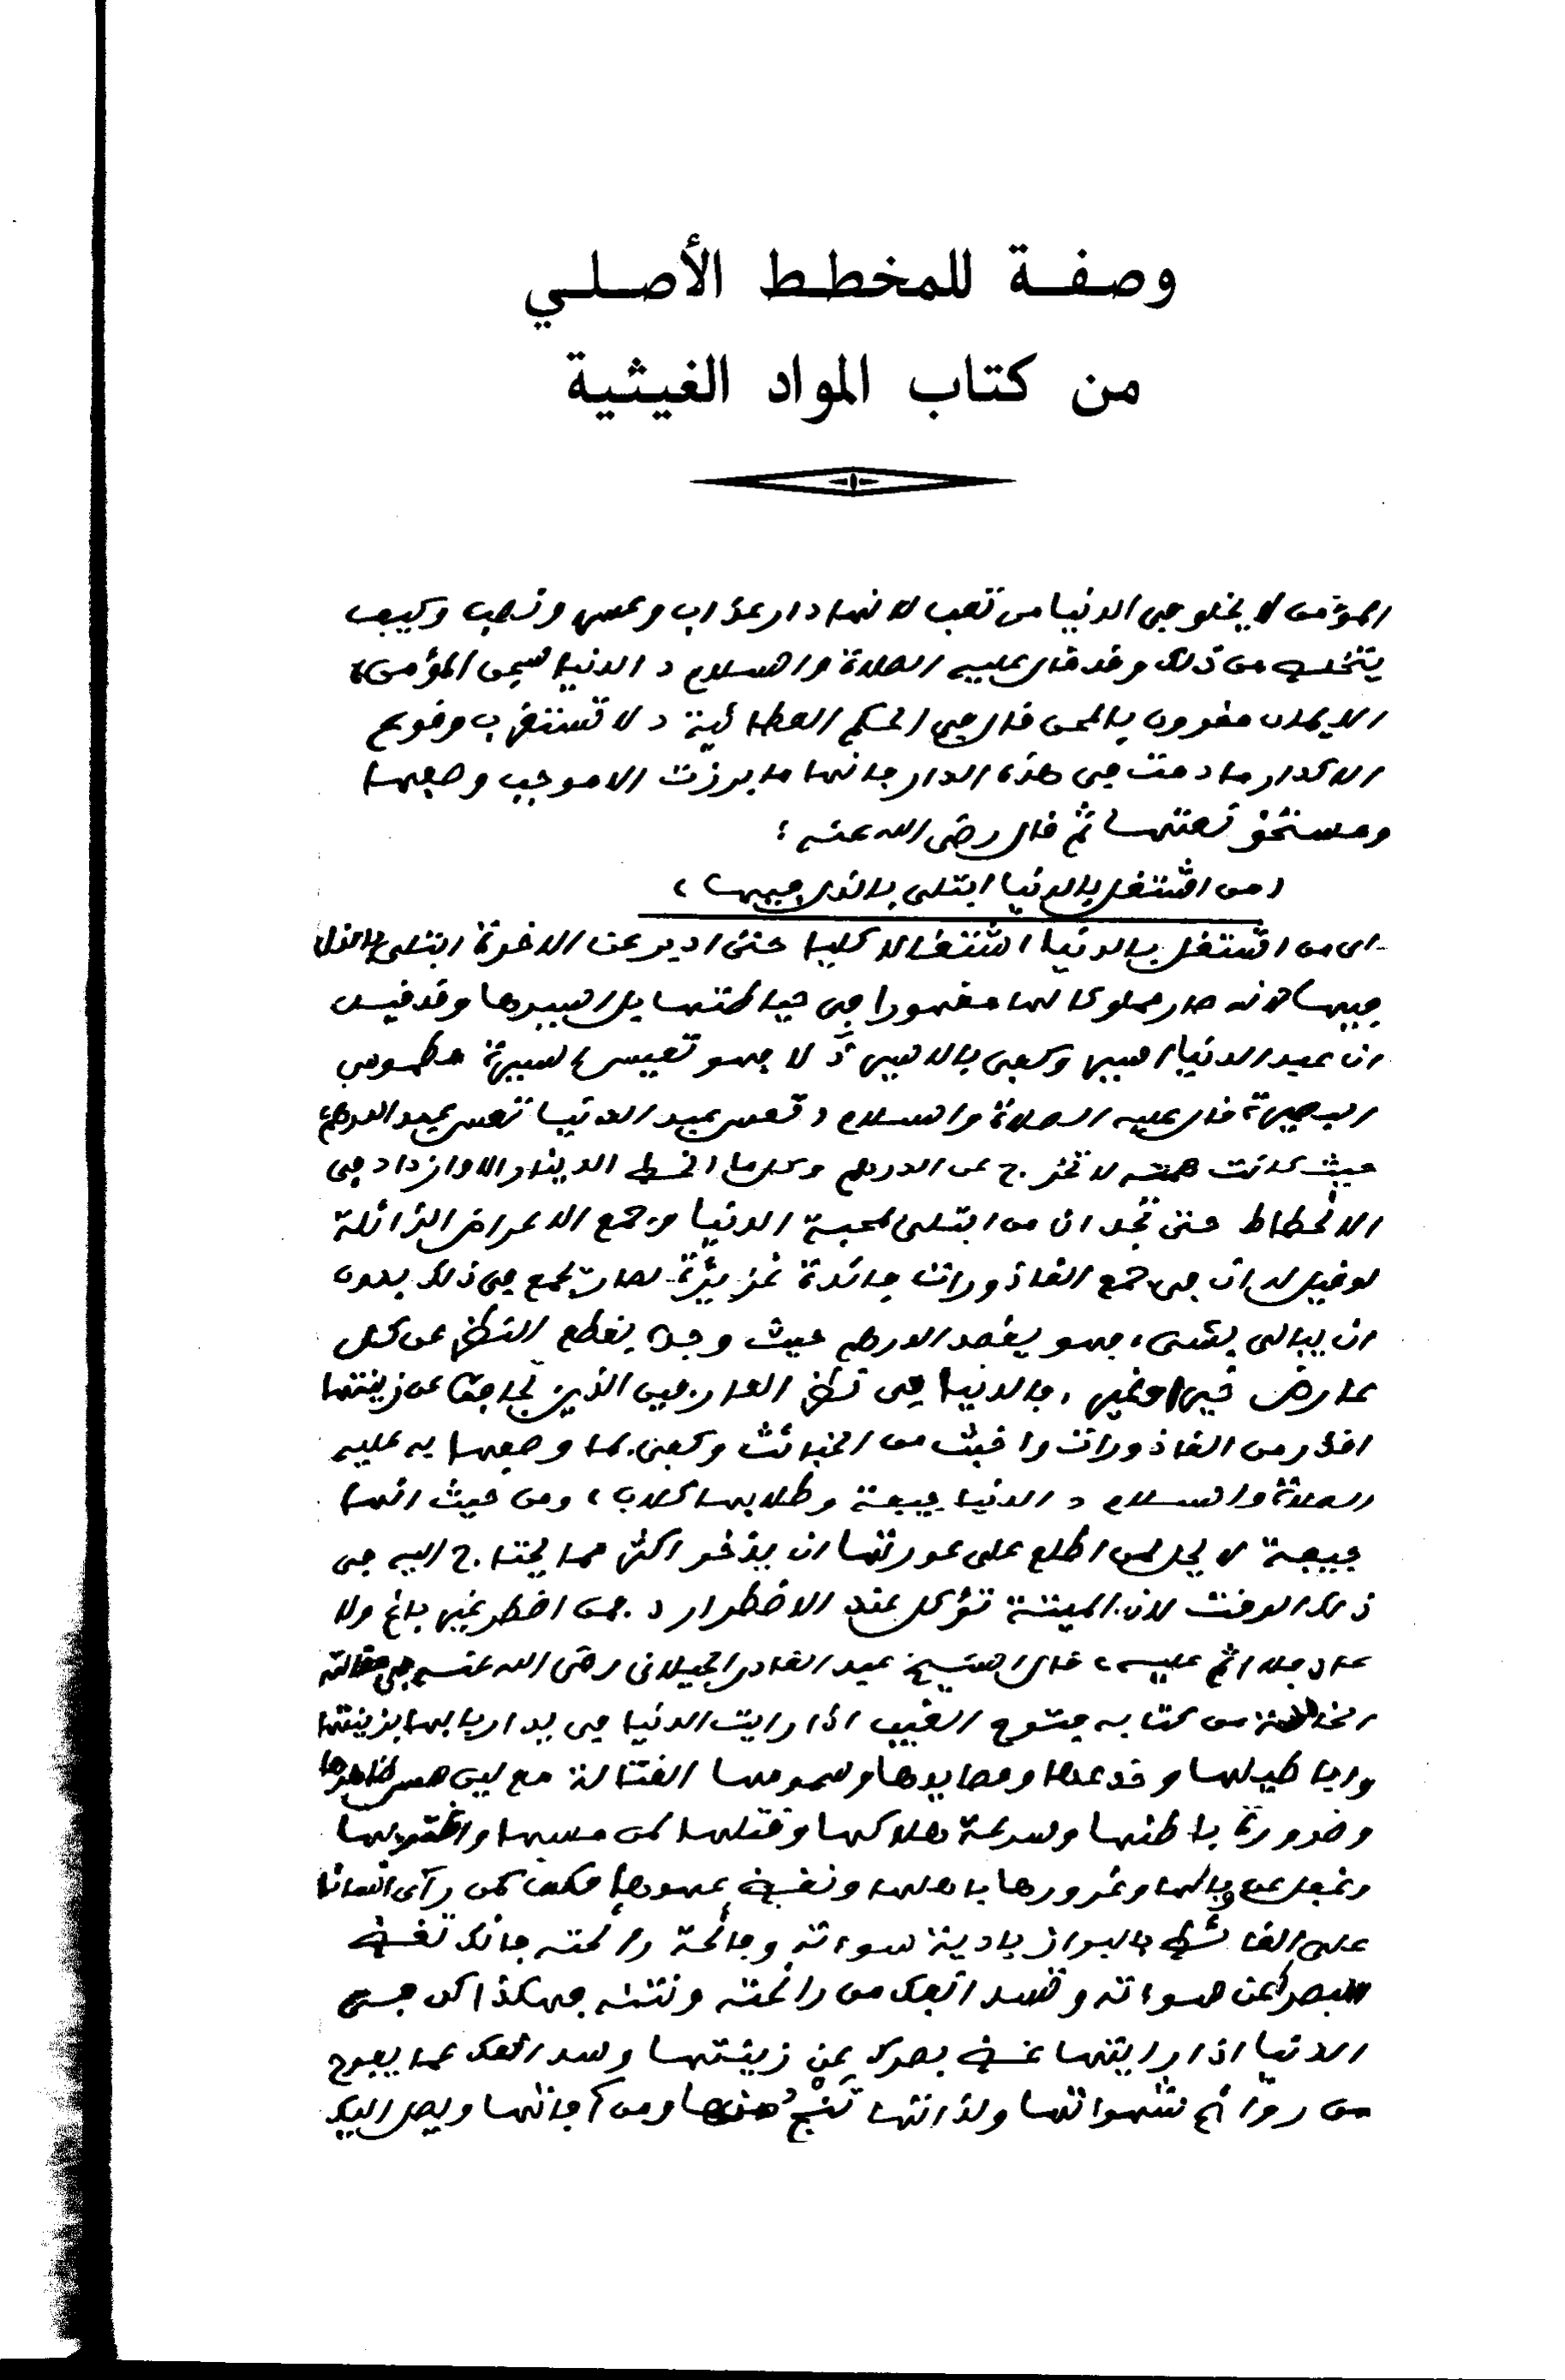 وصفة للمخطط الأصلي
من كتاب المواد الغيثية
المؤمن لا يخلو في الدنيا من تعب لانها دار عذاب ومحن ونصب وكيف
يتخلص من ذلك وقد قال عليه الصلاة والسلام « الدنيا سجن المؤمن»
الايمان مقرون بالمحن قال في الحكم العطائية « لا تستغرب وقوع
الاكدار ما دمت في هذه الدار فانها ما برزت الا موجب وصفها
ومستحق نعتها» ثم قال رضي الله عنه :
(من اشتغل بالدنيا ابتلى بالذل فيها)
اى من اشتغل بالدنيا اشتغالا كليا حتى ادبر عن الاخرة ابتلى بالذل
فيها لانه صار مملوكا لها مقهورا في حيالتها بل اسيرها وقد قيل
ان عبد الدنيا اسير وكفى بالاسير ذلا فهو تعيس السيرة مطموس
البصيرة قال عليه الصلاة والسلام « تعس عبد الدنيا تعس عبد الدرهم»
حيث كانت همته لا تخرج عن الدرهم وكلما انحط الدينار الا وازداد في
الانحطاط حتى تجد ان من ابتلى بمحبة الدنيا وجمع الاعراض الزائلة
لو قيل له ان في جمع القاذورات فائدة غزيرة لصار يجمع في ذلك بدون
ان يبالى بشىء فهو يقصد الدرهم حيث وجد بقطع النظر عن كل
عارض خيرا وغير، فالدنيا في نظر العارفين الذين تجافوا عن زينتها
اقذر من القاذورات واخبث من الخبائث وكفى بما وصفها به عليه
الصلاة والسلام « الدنيا جيفة وطلابها كلاب» ومن حيث انها
جيفة لا يحل لمن اطلع على عورتها ان يذخر اكثر مما يحتاج اليه في
ذلك الوقت لان الميتة تؤكل عند الاضطرار « فمن اضطر غير باغ ولا
عاد فلا اثم عليه» قال الشيخ عبد القادر الجيلانى رضى الله عنه في مقالته
من كتابه فتوح الغيب اذا رايت الدنيا في يد اربابها بزينتها
واباطيلها وخدعها ومصايدها وسمومها القتالة مع لين مس ظاهرها
وضرورة باطنها وسرعة هلاكها وقتلها لمن مسها واغتر بها
وغفل عن وبالها وغرورها باهلها ونقض عهودها فكن كمن رآى انسانا
على الغائط بالبراز بادية سوءته وفائحة رائحته فانك تغض
بصرك عن سوءاته وتسد انفك من رائحته ونتنه فهكذا كن في
الدنيا اذا رايتها غض بصرك عن زينتها وسد انفك عما يفوح
من روائح شهواتها ولذاتها تنج منها ومن آفاتها ويصل اليك